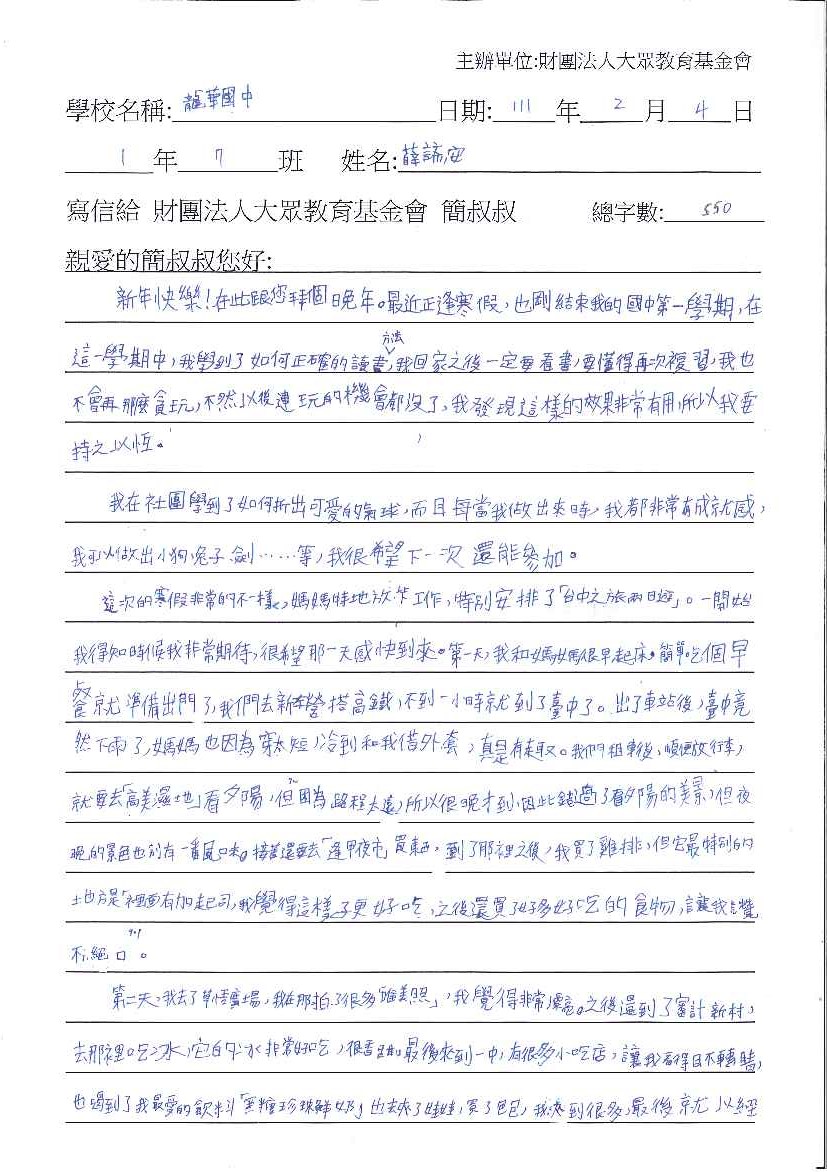 主辦單位:財團法人大眾教育基金會
學校名稱: 龍華國中 日期: 111 年 2 月 4 日
1 年 7 班 姓名: 薛諦安
寫信給 財團法人大眾教育基金會 簡叔叔 總字數: 550
親愛的簡叔叔您好:
新年快樂!在此跟您拜個晚年。最近正逢寒假,也剛結束我的國中第一學期,在
這一學期中,我學到了如何正確的讀書方法,我回家之後一定要看書,要懂得再次複習,我也
不會再那麼貪玩,不然以後連玩的機會都沒了,我發現這樣的效果非常有用,所以我要
持之以恆。
我在社團學到了如何折出可愛的氣球,而且每當我做出來時,我都非常有成就感,
我可以做出小狗、兔子、劍……等,我很希望下一次還能參加。
這次的寒假非常的不一樣,媽媽特地放下工作,特別安排了「台中之旅兩日遊」。一開始
我得知時候我非常期待,很希望那一天感快到來。第一天,我和媽媽很早起床。簡單吃個早
餐就準備出門了,我們去新營搭高鐵,不到一小時就到了臺中了。出了車站後,臺中竟
然下雨了,媽媽也因為穿太短,冷到和我借外套,真是有趣。我們租車後,順便放行李,
就要去「高美濕地」看夕陽,但因為路程太遠,所以很晚才到,因此錯過了看夕陽的美景,但夜
晚的景色也別有一番風味。接著還要去「逢甲夜市」買東西,到了那裡之後,我買了雞排,但它最特別的
地方是「裡面有加起司,我覺得這樣子更好吃,之後還買了好多好吃的食物,讓我讚
不絕口。
第二天,我去了草悟廣場,我在那拍了很多「唯美照」,我覺得非常滿意。之後還到了審計新村,
去那裡吃冰,它的冰非常好吃,很香甜。最後來到一中,有很多小吃店,讓我看得目不轉睛,
也喝到了我最愛的飲料「黑糖珍珠鮮奶」也去夾了娃娃,買了包包,我夾到很多,最後就以經